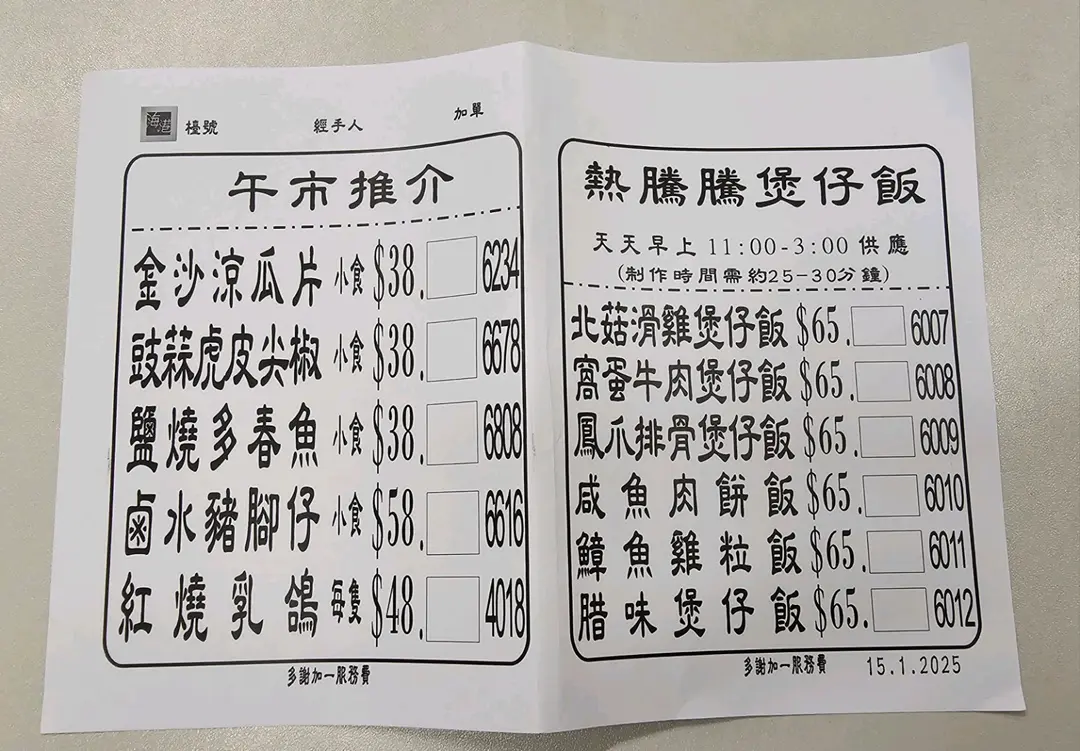 海港 檯號 經手人 加單
午市推介
金沙涼瓜片 小食 $38. 6234
豉蒜虎皮尖椒 小食 $38. 6678
鹽燒多春魚 小食 $38. 6808
鹵水豬腳仔 小食 $58. 6616
紅燒乳鴿 每隻 $48. 4018
多謝加一服務費
熱騰騰煲仔飯
天天早上 11:00-3:00 供應
(制作時間需約25-30分鐘)
北菇滑雞煲仔飯 $65. 6007
窩蛋牛肉煲仔飯 $65. 6008
鳳爪排骨煲仔飯 $65. 6009
咸魚肉餅飯 $65. 6010
鱆魚雞粒飯 $65. 6011
腊味煲仔飯 $65. 6012
多謝加一服務費 15.1.2025